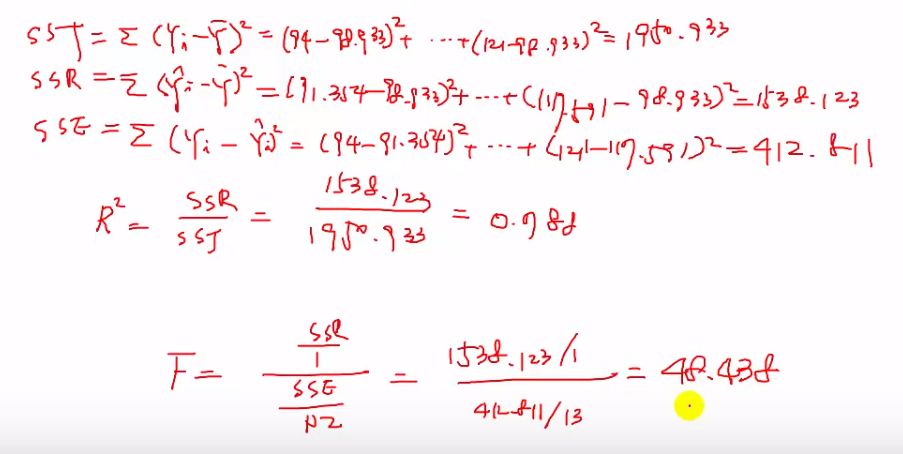 SST = Σ (Yᵢ - Ȳ)² = (94 - 98.933)² + ... + (121 - 98.933)² = 1950.933
SSR = Σ (Ŷᵢ - Ȳ)² = (91.354 - 98.933)² + ... + (117.591 - 98.933)² = 1538.123
SSE = Σ (Yᵢ - Ŷᵢ)² = (94 - 91.354)² + ... + (121 - 117.591)² = 412.811
R² = SSR / SST = 1538.123 / 1950.933 = 0.788
F = (SSR / 1) / (SSE / n-2) = (1538.123 / 1) / (412.811 / 13) = 48.438